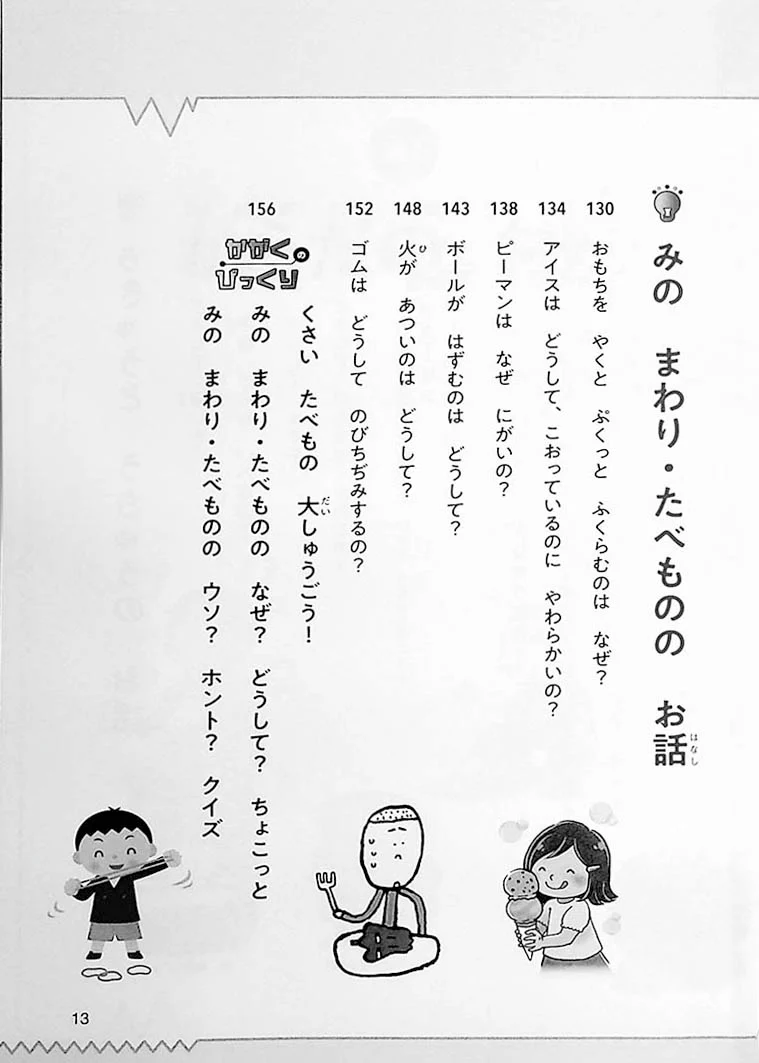 みの まわり・たべものの お話
はなし
130 おもちを やくと ぷくっと ふくらむのは なぜ？
134 アイスは どうして、こおっているのに やわらかいの？
138 ピーマンは なぜ にがいの？
143 ボールが はずむのは どうして？
148 火が あついのは どうして？
ひ
152 ゴムは どうして のびちぢみするの？
156 かがくの びっくり
くさい たべもの 大しゅうごう！
だい
みの まわり・たべものの なぜ？ どうして？ ちょこっと
みの まわり・たべものの ウソ？ ホント？ クイズ
13